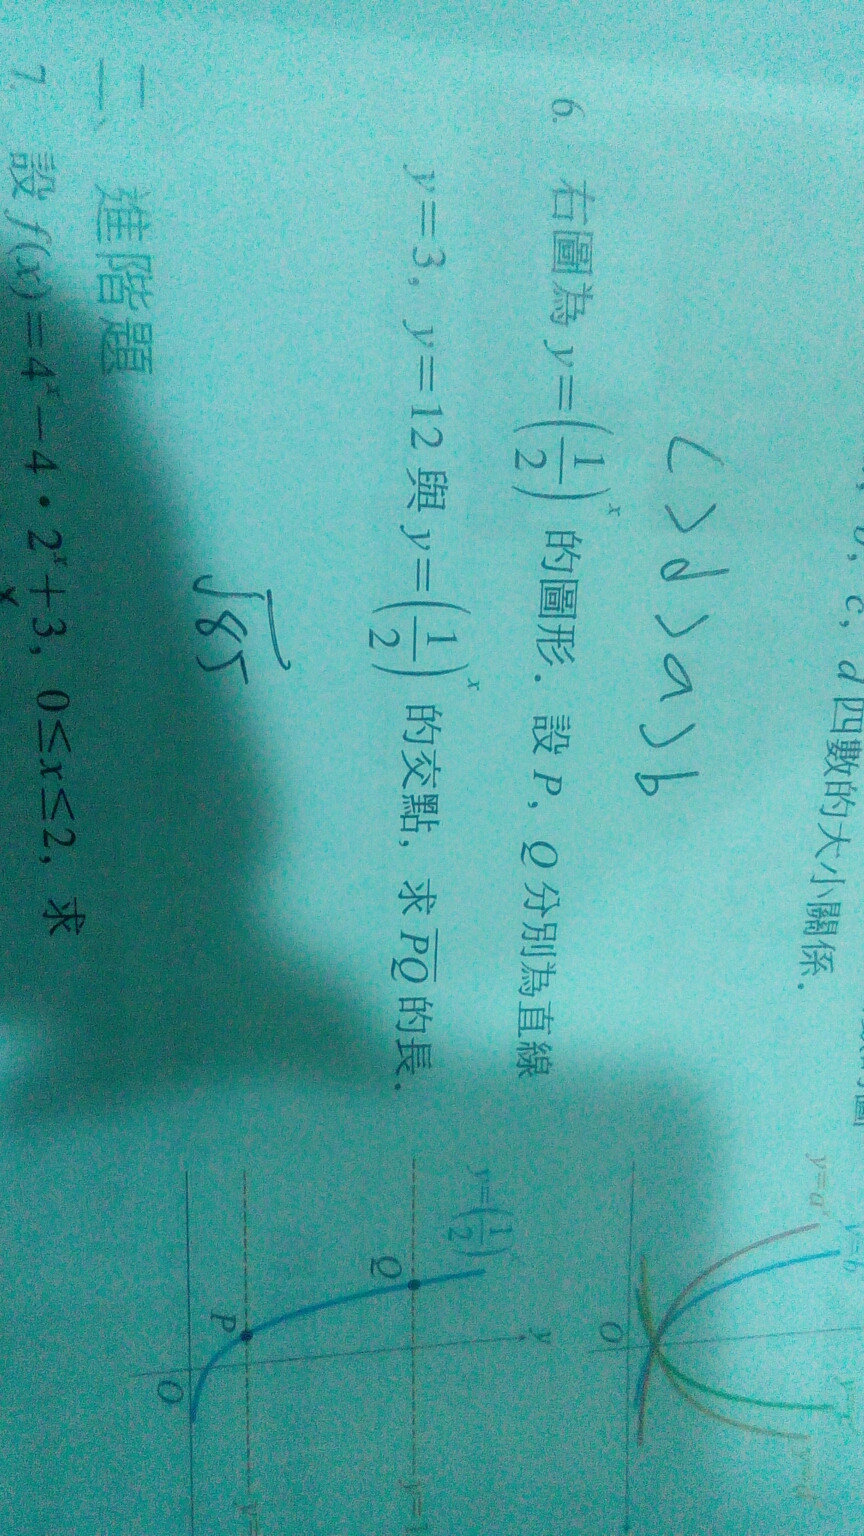 c, d 四數的大小關係.
c>d>a>b
6. 右圖為 y=(1/2)^x 的圖形. 設 P, Q 分別為直線
y=3, y=12 與 y=(1/2)^x 的交點, 求 PQ 的長.
√85
二、進階題
7. 設 f(x)=4^x-4·2^x+3, 0≤x≤2, 求
x
y=a^x
O
y=(1/2)^x
y
Q
P
O